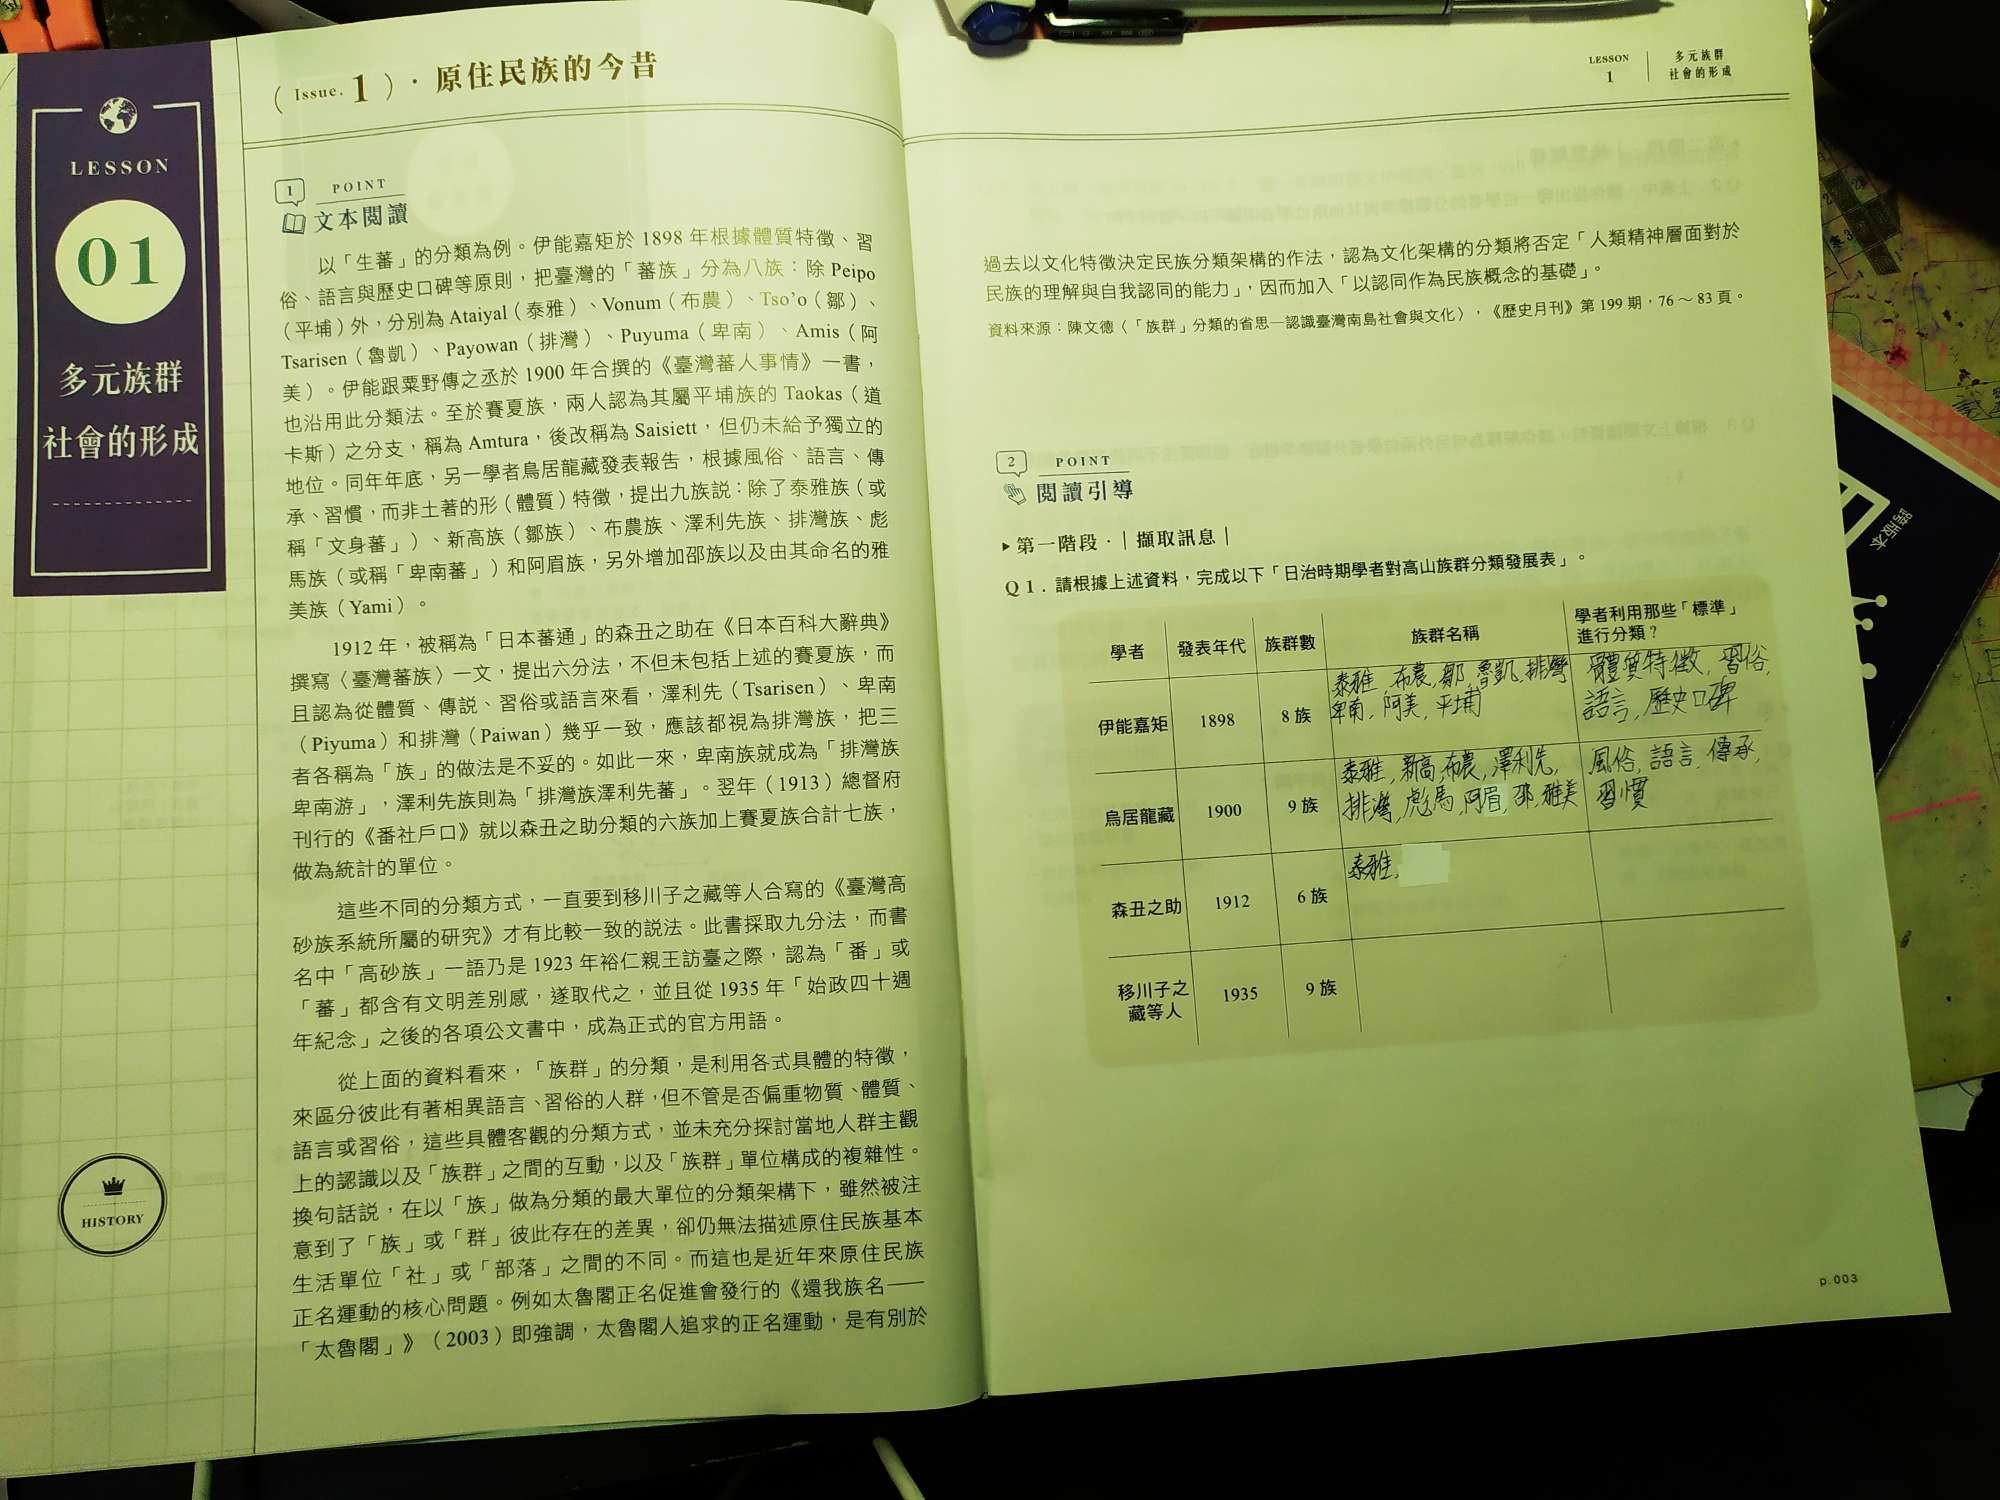 LESSON
01
多元族群
社會的形成
HISTORY
( Issue. 1 ) · 原住民族的今昔
1 POINT
文本閱讀
以「生蕃」的分類為例。伊能嘉矩於 1898 年根據體質特徵、習
俗、語言與歷史口碑等原則，把臺灣的「蕃族」分為八族：除 Peipo
（平埔）外，分別為 Ataiyal（泰雅）、Vonum（布農）、Tso'o（鄒）、
Tsarisen（魯凱）、Payowan（排灣）、Puyuma（卑南）、Amis（阿
美）。伊能跟粟野傳之丞於 1900 年合撰的《臺灣蕃人事情》一書，
也沿用此分類法。至於賽夏族，兩人認為其屬平埔族的 Taokas（道
卡斯）之分支，稱為 Amtura，後改稱為 Saisiett，但仍未給予獨立的
地位。同年年底，另一學者鳥居龍藏發表報告，根據風俗、語言、傳
承、習慣，而非土著的形（體質）特徵，提出九族說：除了泰雅族（或
稱「文身蕃」）、新高族（鄒族）、布農族、澤利先族、排灣族、彪
馬族（或稱「卑南蕃」）和阿眉族，另外增加邵族以及由其命名的雅
美族（Yami）。
1912 年，被稱為「日本蕃通」的森丑之助在《日本百科大辭典》
撰寫〈臺灣蕃族〉一文，提出六分法，不但未包括上述的賽夏族，而
且認為從體質、傳說、習俗或語言來看，澤利先（Tsarisen）、卑南
（Piyuma）和排灣（Paiwan）幾乎一致，應該都視為排灣族，把三
者各稱為「族」的做法是不妥的。如此一來，卑南族就成為「排灣族
卑南游」，澤利先族則為「排灣族澤利先蕃」。翌年（1913）總督府
刊行的《番社戶口》就以森丑之助分類的六族加上賽夏族合計七族，
做為統計的單位。
這些不同的分類方式，一直要到移川子之藏等人合寫的《臺灣高
砂族系統所屬的研究》才有比較一致的說法。此書採取九分法，而書
名中「高砂族」一語乃是 1923 年裕仁親王訪臺之際，認為「番」或
「蕃」都含有文明差別感，遂取代之，並且從 1935 年「始政四十週
年紀念」之後的各項公文書中，成為正式的官方用語。
從上面的資料看來，「族群」的分類，是利用各式具體的特徵，
來區分彼此有著相異語言、習俗的人群，但不管是否偏重物質、體質、
語言或習俗，這些具體客觀的分類方式，並未充分探討當地人群主觀
上的認識以及「族群」之間的互動，以及「族群」單位構成的複雜性。
換句話說，在以「族」做為分類的最大單位的分類架構下，雖然被注
意到了「族」或「群」彼此存在的差異，卻仍無法描述原住民族基本
生活單位「社」或「部落」之間的不同。而這也是近年來原住民族
正名運動的核心問題。例如太魯閣正名促進會發行的《還我族名——
「太魯閣」》（2003）即強調，太魯閣人追求的正名運動，是有別於
LESSON 1 多元族群
社會的形成
過去以文化特徵決定民族分類架構的作法，認為文化架構的分類將否定「人類精神層面對於
民族的理解與自我認同的能力」，因而加入「以認同作為民族概念的基礎」。
資料來源：陳文德〈「族群」分類的省思—認識臺灣南島社會與文化〉，《歷史月刊》第 199 期，76～83 頁。
2 POINT
閱讀引導
▶第一階段·｜擷取訊息｜
Q 1 . 請根據上述資料，完成以下「日治時期學者對高山族群分類發展表」。
學者 發表年代 族群數 族群名稱 學者利用那些「標準」
進行分類？
伊能嘉矩 1898 8 族 泰雅,布農,鄒,魯凱,排灣 體質特徵,習俗,
卑南,阿美,平埔 語言,歷史口碑
鳥居龍藏 1900 9 族 泰雅,新高,布農,澤利先, 風俗,語言,傳承,
排灣,彪馬,阿眉,邵,雅美 習慣
森丑之助 1912 6 族 泰雅,
移川子之
藏等人 1935 9 族
p.003
跨版本